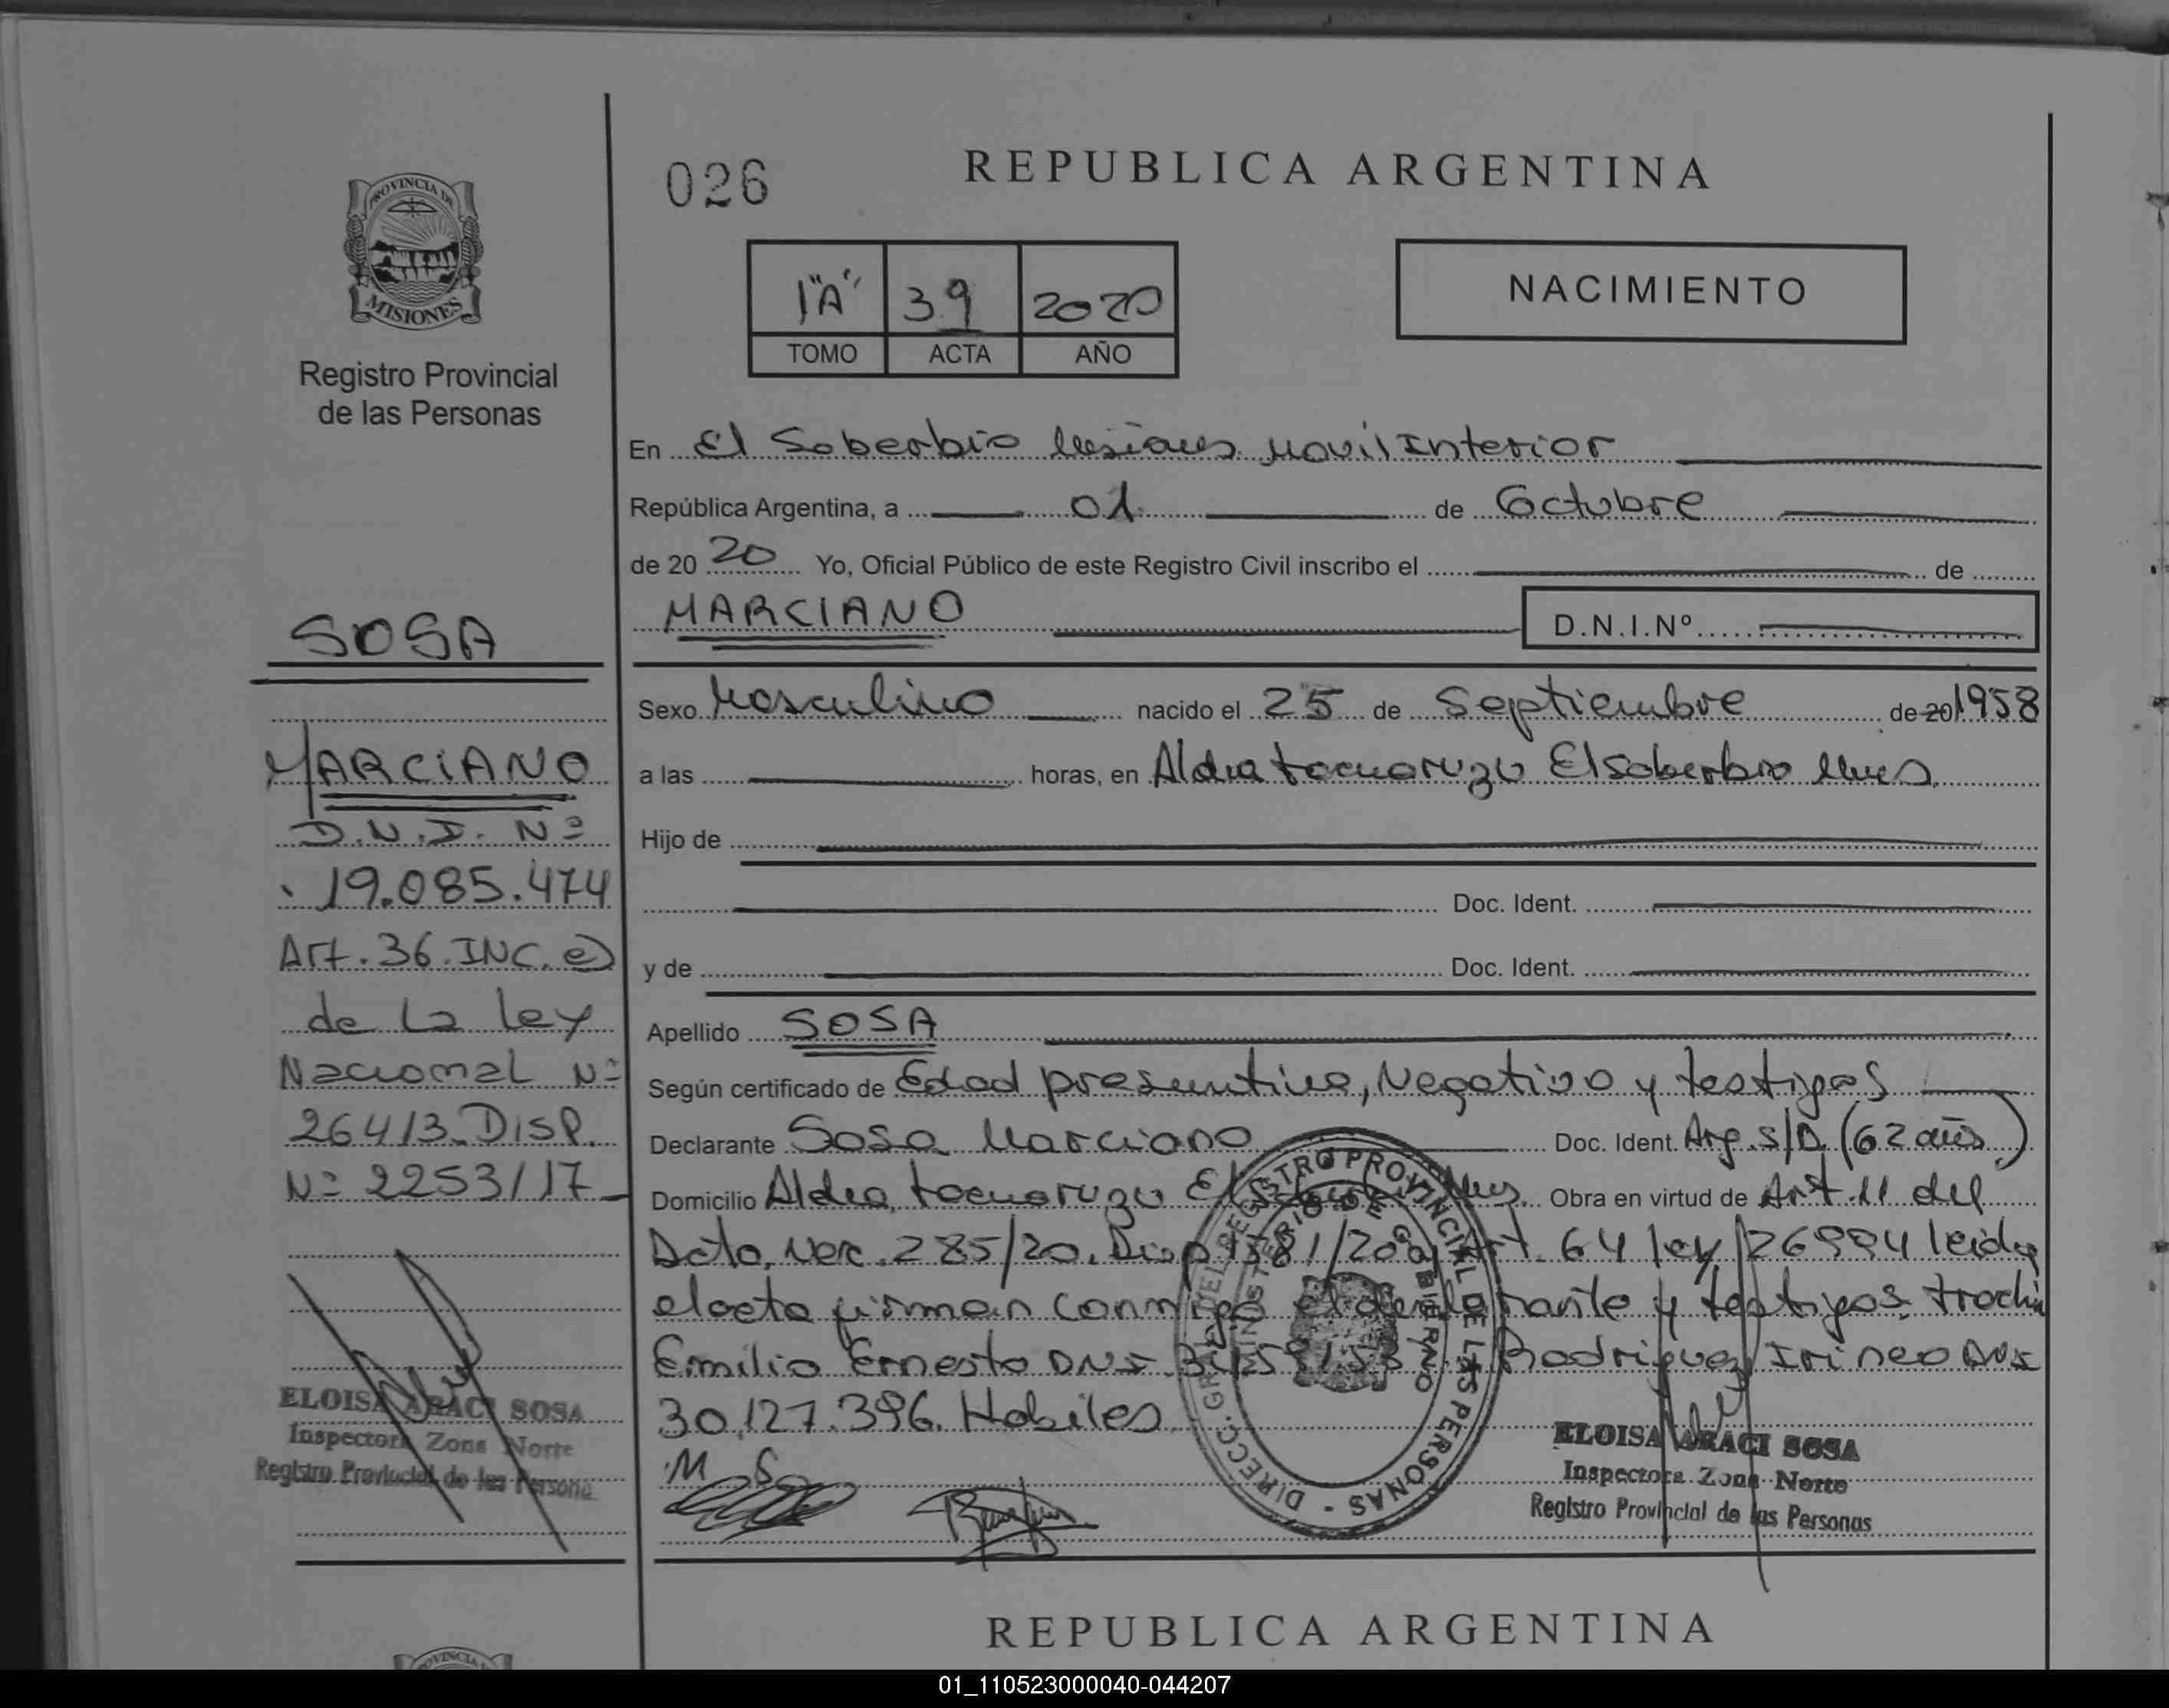 PROVINCIA DE
MISIONES
Registro Provincial
de las Personas
SOSA
MARCIANO
D.N.I. Nº
19.085.474
Art. 36. INC. e)
de La ley
Nacional Nº
26413 DISP.
Nº 2253/17
ELOISA ARACI SOSA
Inspectora Zona Norte
Registro Provincial de las Persona
026
REPUBLICA ARGENTINA
1"A" 39 2020
TOMO ACTA AÑO
NACIMIENTO
En El Soberbio Misiones Movil Interior
República Argentina, a 01 de Octubre
de 20 20 Yo, Oficial Público de este Registro Civil inscribo el de
MARCIANO D.N.I.Nº
Sexo Masculino nacido el 25 de Septiembre de 20 1958
a las horas, en Aldea El soberbio Mnes
Hijo de
Doc. Ident.
y de Doc. Ident.
Apellido SOSA
Según certificado de Edad presuntiva, Negativo y testigos
Declarante Sosa Marciano Doc. Ident. Arg. S/D (62 años)
Domicilio Aldea El Mnes. Obra en virtud de Art. 11 del
Dcto. 285/20. Disp Art. 64 ley 26994 leida
el acta firman conmigo el declarante y testigos
Emilio Ernesto DNI Rodriguez Irineo DNI
30.127.396. Habiles
M S
DIRECC. GRAL. DEL REGISTRO PROVINCIAL DE LAS PERSONAS -
MINISTERIO DE GOBIERNO
ELOISA ARACI SOSA
Inspectora Zona Norte
Registro Provincial de las Personas
REPUBLICA ARGENTINA
01_110523000040-044207